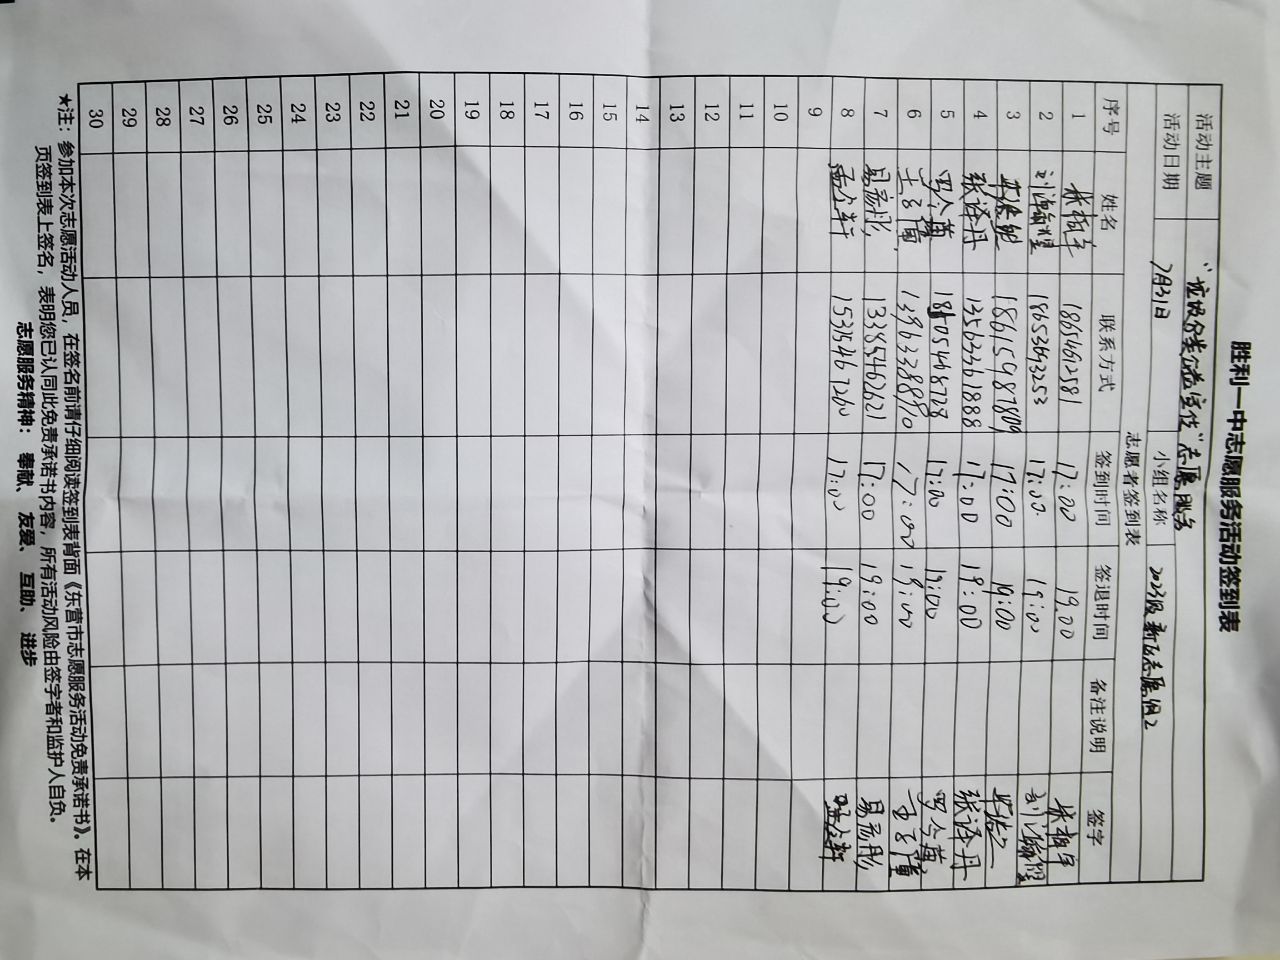 胜利一中志愿服务活动签到表
活动主题 “垃圾分类公益宣传”志愿服务
活动日期 7月31日 小组名称 2023级新区志愿组2
志愿者签到表
序号 姓名 联系方式 签到时间 签退时间 备注说明 签字
1 18654612581 17:00 19:00
2 刘瀚煜 18653693253 17:00 19:00 刘瀚煜
3 18615987809 17:00 19:00
4 张译丹 13562361888 17:00 19:00 张译丹
5 罗令菡 18505468728 17:00 19:00 罗令菡
6 13963388970 17:00 19:00
7 易彦彤 13385462621 17:00 19:00 易彦彤
8 1535467260 17:00 19:00
9
10
11
12
13
14
15
16
17
18
19
20
21
22
23
24
25
26
27
28
29
30
★注：参加本次志愿活动人员，在签名前请仔细阅读签到表背面《东营市志愿服务活动免责承诺书》。在本
页签到表上签名，表明您已认同此免责承诺书内容，所有活动风险由签字者和监护人自负。
志愿服务精神： 奉献、 友爱、 互助、 进步